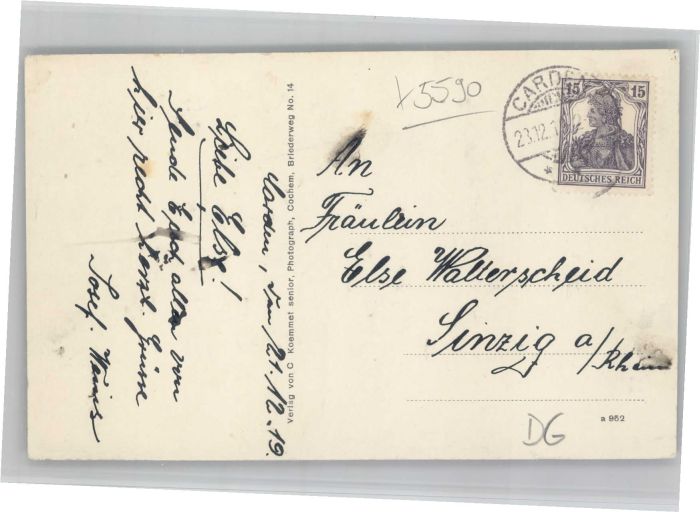 Carden, den 21.12.19.
Liebe Else!
Sende Euch allen von
hier recht herzl. Grüsse
Josef
Verlag von C Koemmet senior, Photograph, Cochem, Briederweg No. 14
x5590
CARD
23.12.1
15 15
DEUTSCHES REICH
An
Fräulein
Else Walterscheid
Sinzig a/Rhein
DG
a 952